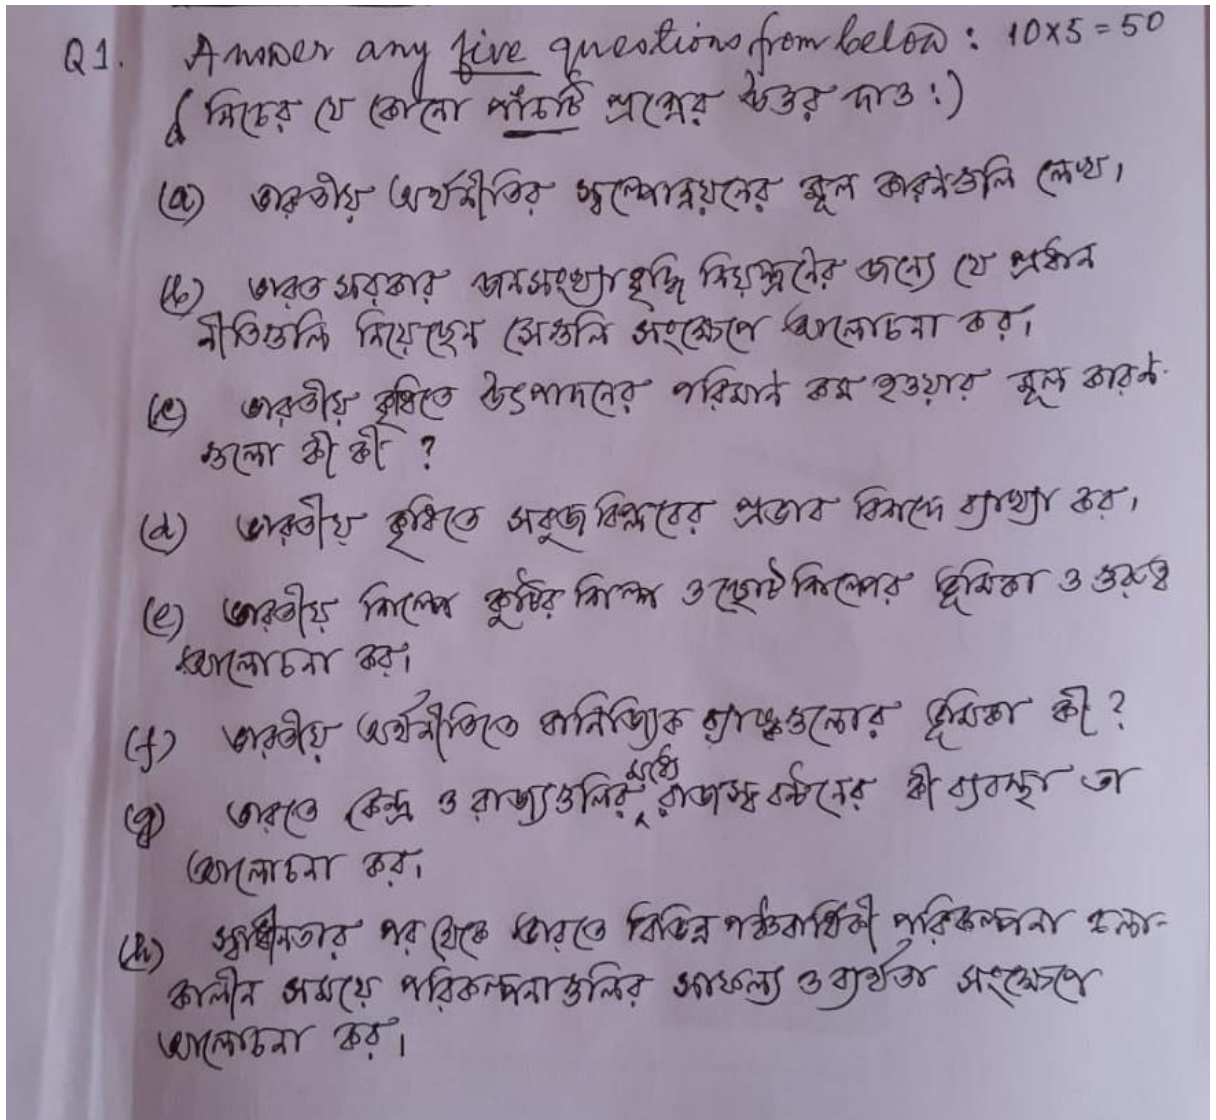 Q1. Answer any five questions from below : 10×5 = 50
( নিচের যে কোনো পাঁচটি প্রশ্নের উত্তর দাও :)
(a) ভারতীয় অর্থনীতির স্বল্পোন্নয়নের মূল কারণগুলি লেখ।
(b) ভারত সরকার জনসংখ্যা বৃদ্ধি নিয়ন্ত্রনের জন্যে যে প্রধান
নীতিগুলি নিয়েছেন সেগুলি সংক্ষেপে আলোচনা কর।
(c) ভারতীয় কৃষিতে উৎপাদনের পরিমান কম হওয়ার মূল কারন-
গুলো কী কী ?
(d) ভারতীয় কৃষিতে সবুজ বিপ্লবের প্রভাব বিশদে ব্যাখ্যা কর।
(e) ভারতীয় শিল্পে কুটির শিল্প ও ছোট শিল্পের ভূমিকা ও গুরুত্ব
আলোচনা কর।
(f) ভারতীয় অর্থনীতিতে বানিজ্যিক ব্যাঙ্কগুলোর ভূমিকা কী ?
(g) ভারতে কেন্দ্র ও রাজ্যগুলির মধ্যে রাজস্ব বন্টনের কী ব্যবস্থা তা
আলোচনা কর।
(h) স্বাধীনতার পর থেকে ভারতে বিভিন্ন পঞ্চবার্ষিকী পরিকল্পনা চলা-
কালীন সময়ে পরিকল্পনাগুলির সাফল্য ও ব্যর্থতা সংক্ষেপে
আলোচনা কর।